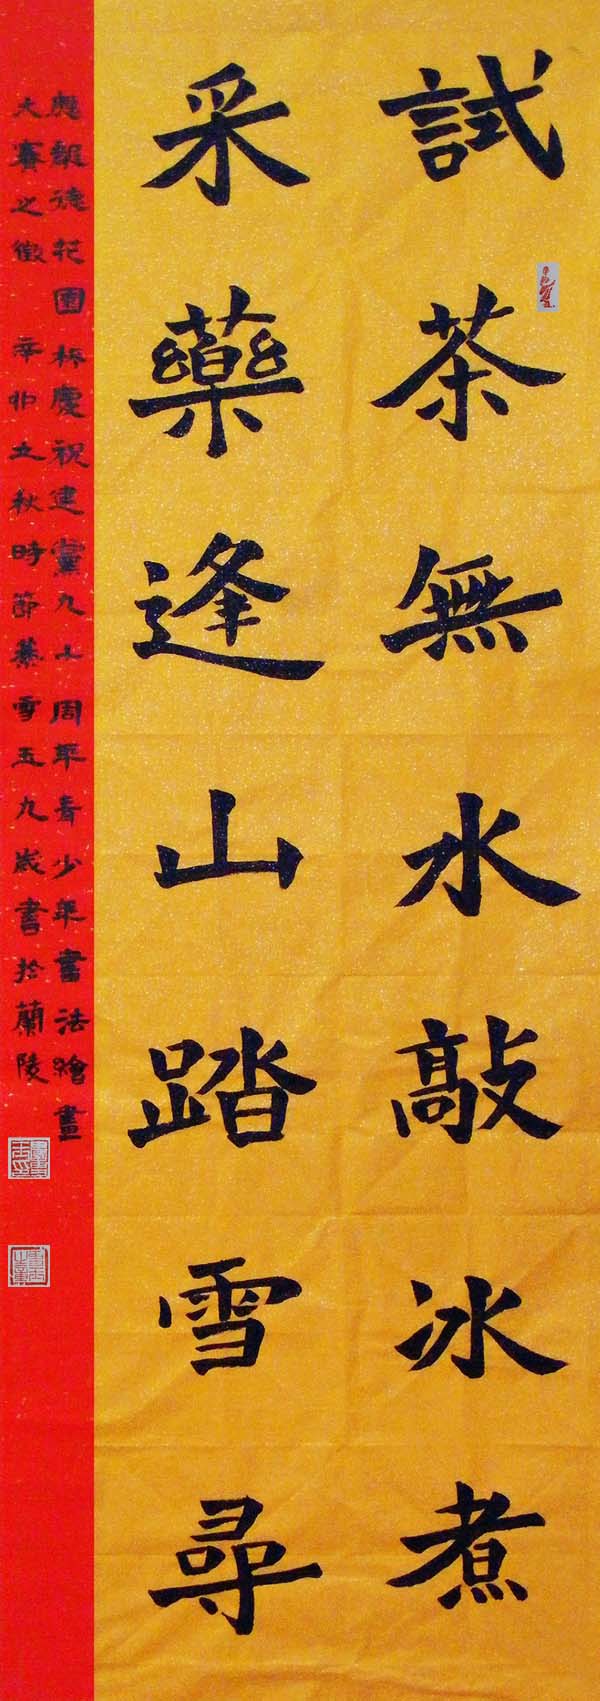 試茶無水敲冰煮
采藥逢山踏雪尋
應報德花園杯慶祝建黨九十周年青少年書法繪畫
大賽之徵 辛卯立秋時節慕雪五九歲書於蘭陵